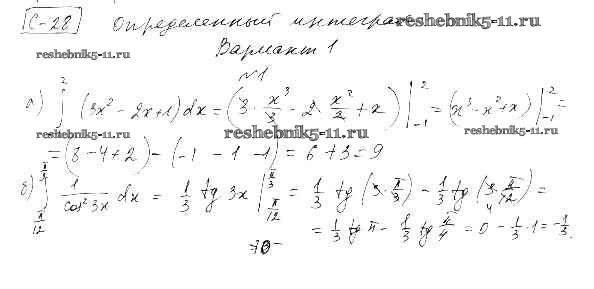 С-28 Определенный интеграл
reshebnik5-11.ru
reshebnik5-11.ru
Вариант 1
№1
а) ∫_{-1}^{2} (3x² - 2x + 1) dx = (3 · x³/3 - 2 · x²/2 + x) |_{-1}^{2} = (x³ - x² + x) |_{-1}^{2} =
reshebnik5-11.ru reshebnik5-11.ru reshebnik5-11.ru
= (8 - 4 + 2) - (-1 - 1 - 1) = 6 + 3 = 9
б) ∫_{π/12}^{π/3} 1/cos² 3x dx = 1/3 tg 3x |_{π/12}^{π/3} = 1/3 tg (3 · π/3) - 1/3 tg (3 · π/12) =
= 1/3 tg π - 1/3 tg π/4 = 0 - 1/3 · 1 = -1/3.